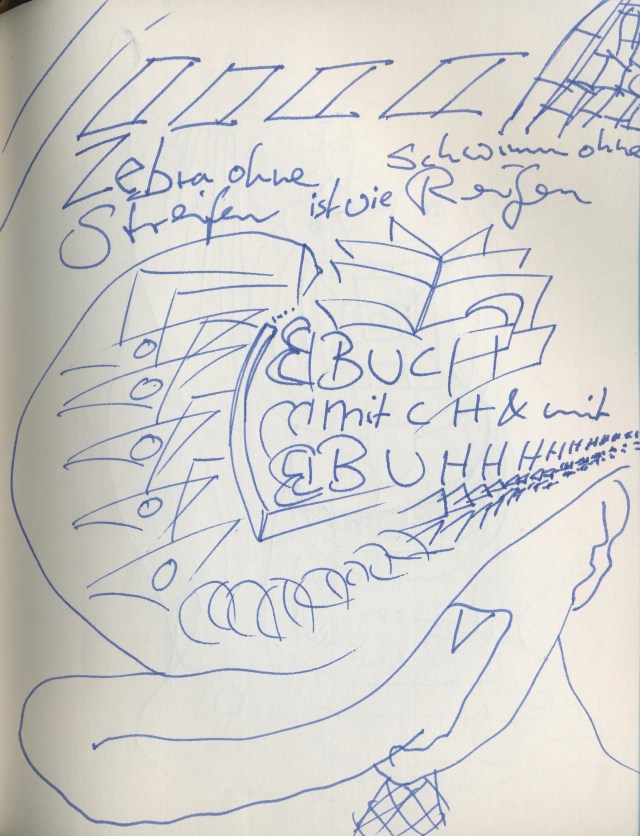 Zebra ohne
Streifen ist wie
Schwimm ohne
Reifen
EBUCH
mit CH & mit
EBUHHHHHHHHHH